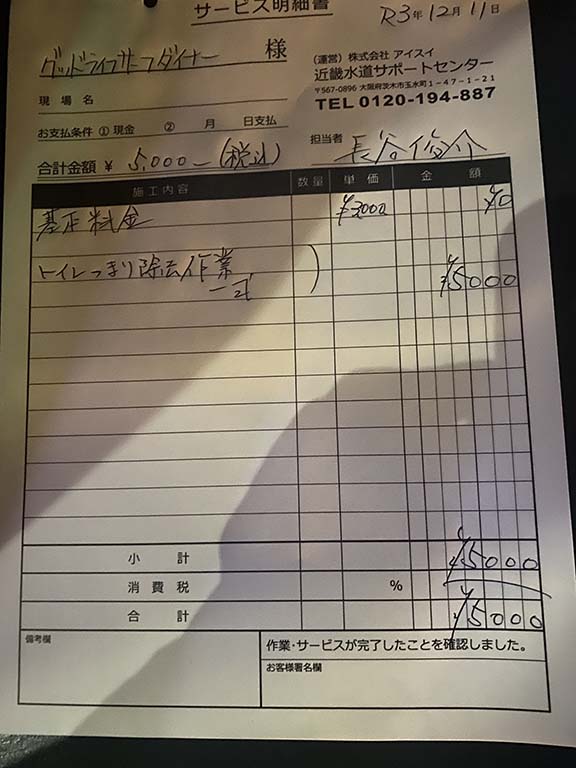 サービス明細書
R3年12月11日
グッドライフサーフダイナー 様
(運営)株式会社 アイスイ
近畿水道サポートセンター
〒567-0896 大阪府茨木市玉水町1-47-1-21
TEL 0120-194-887
現場名
お支払条件 ① 現金 ② 月 日支払
担当者 長谷俊介
合計金額 ¥ 5,000-(税込)
施工内容 数量 単価 金額
基本料金 ¥3000 ¥0
トイレつまり除去作業
一式 ¥5000
小計 ¥5000
消費税 %
合計 ¥5000
備考欄
作業・サービスが完了したことを確認しました。
お客様署名欄